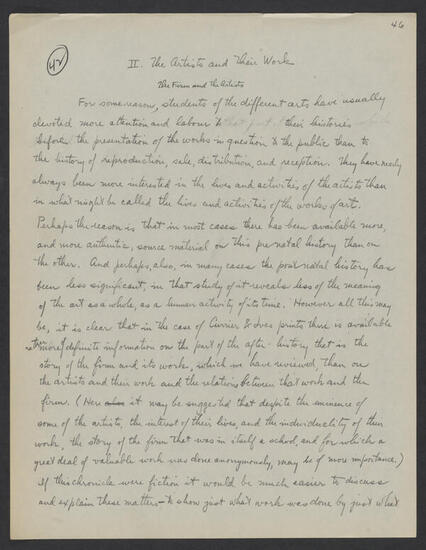 46
42
II. The Artists and Their Work
The Firm and the Artists
For some reason, students of the different arts have usually
devoted more attention and labour to that part their histories
before the presentation of the works in question to the public than to
the history of reproduction, sale, distribution, and reception. They have nearly
always been more interested in the lives and activities of the artists than
in what might be called the lives and activities of the works of art.
Perhaps the reason is that in most cases there has been available more,
and more authentic, source material on this pre-natal history than on
the other. And perhaps, also, in many cases the post-natal history has
been less significant, in that study of it reveals less of the meaning
of the art as a whole, as a human activity of its time. However all this may
be, it is clear that in the case of Currier & Ives prints there is available
more definite information on the part of the after-history that is the
story of the firm and its works, which we have reviewed, than on
the artists and their work and the relations between that work and the
firm. (Here also it may be suggested that despite the eminence of
some of the artists, the interest of their lives, and the individuality of their
work, the story of the firm that was in itself a school, and for which a
great deal of valuable work was done anonymously, may be of more importance.)
If this chronicle were fiction it would be much easier to discuss
and explain these matters – to show just what work was done by just what